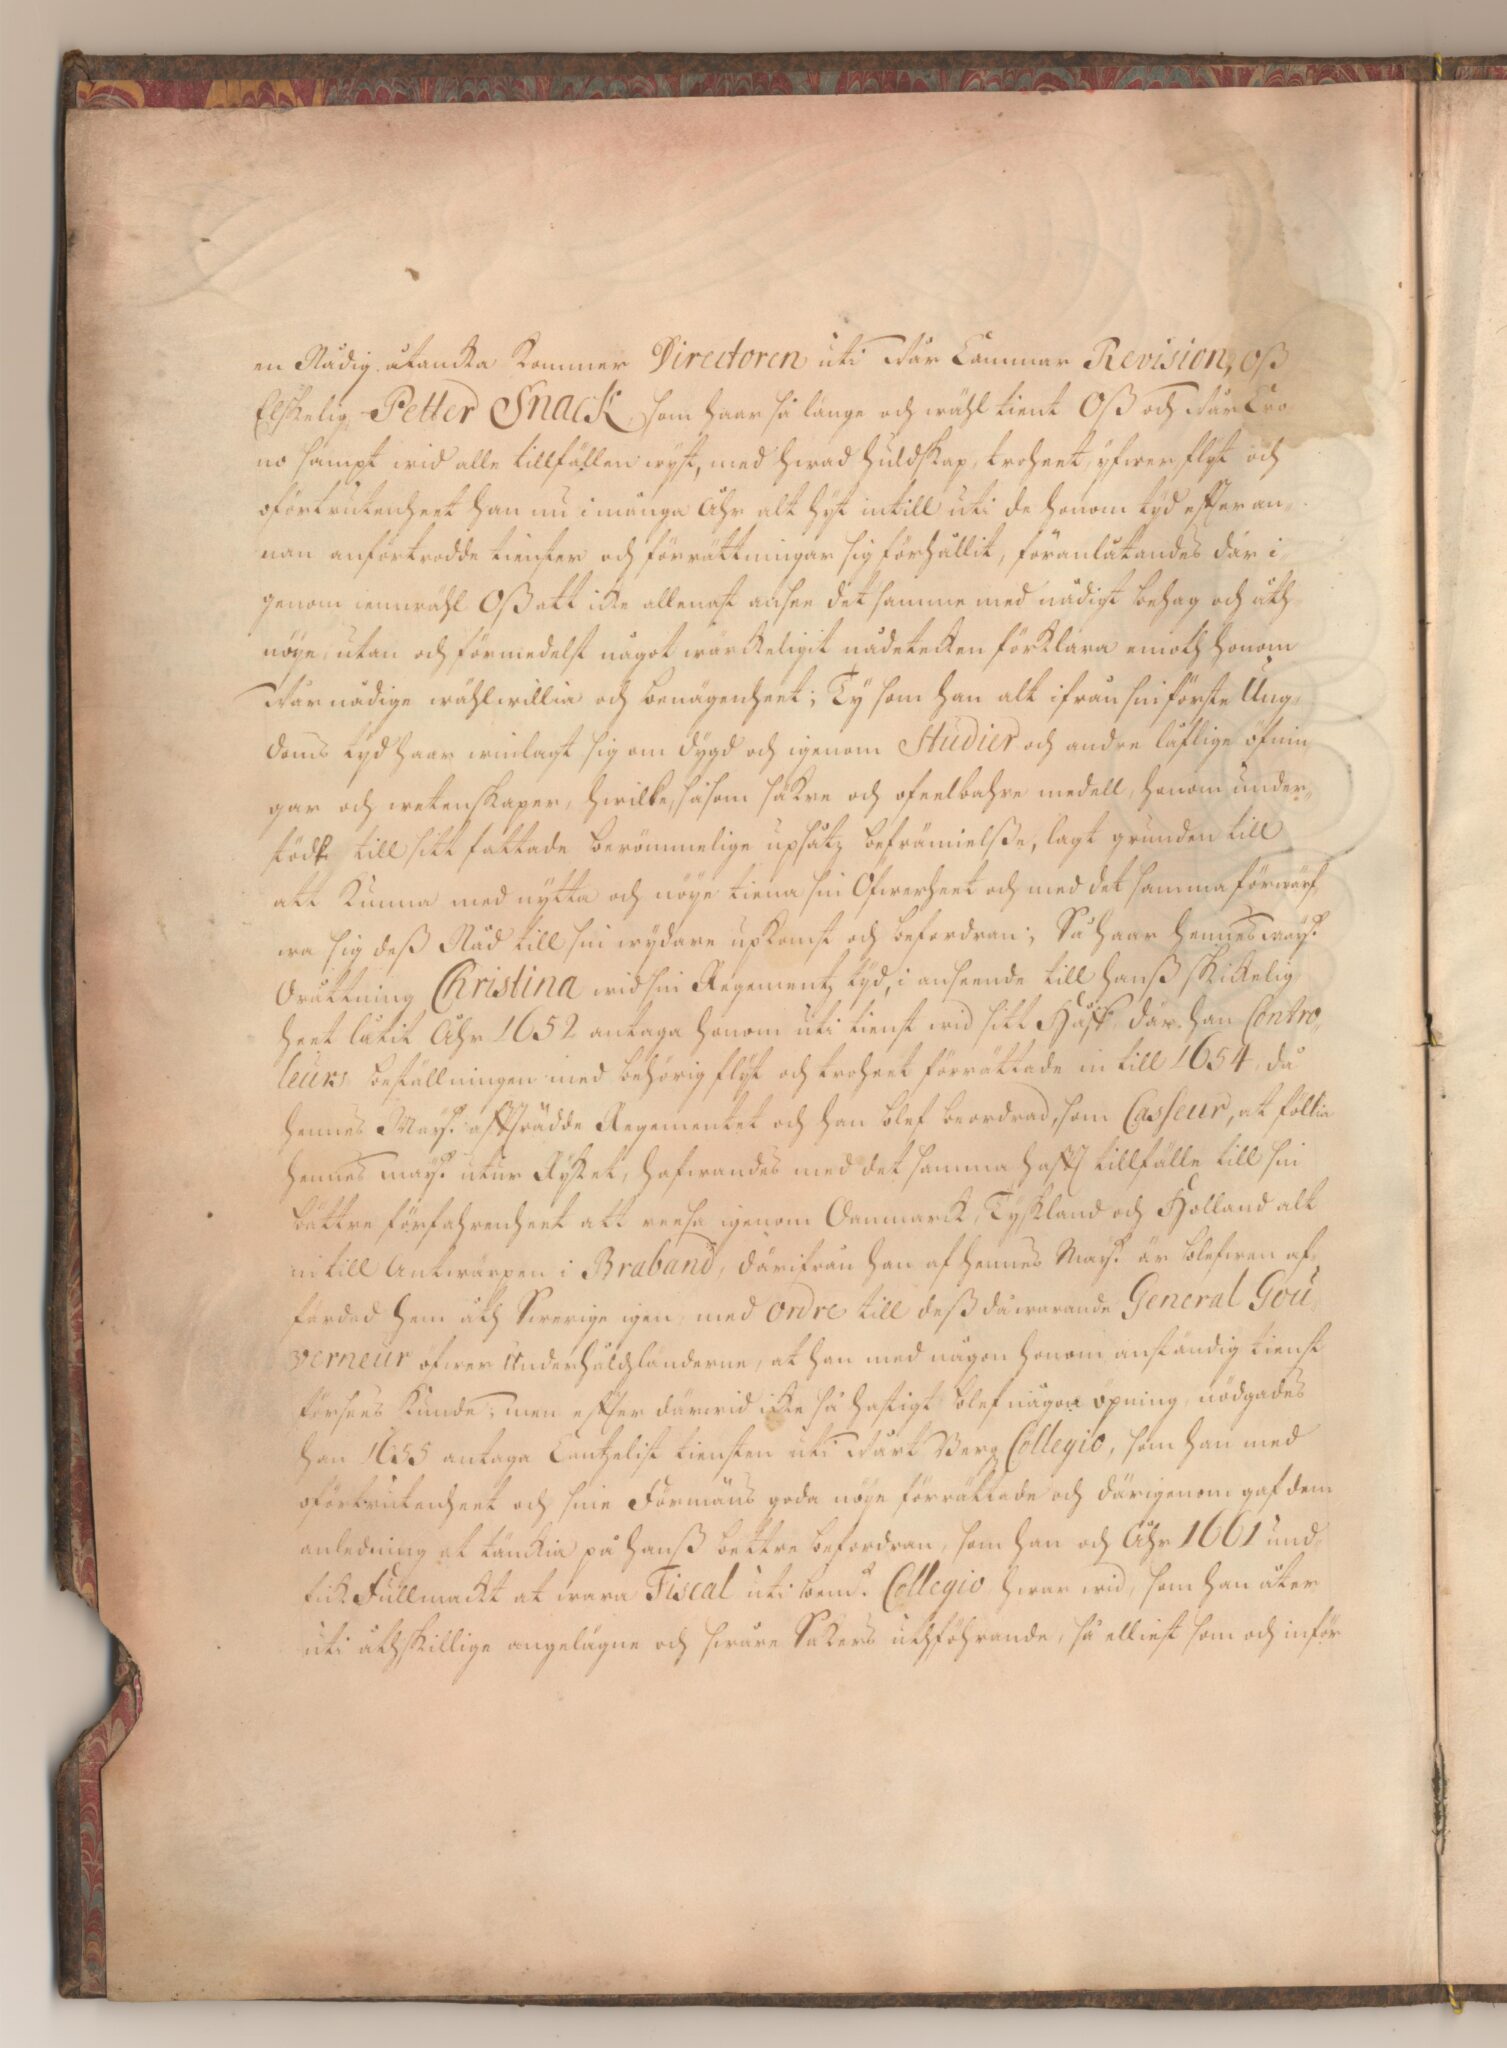 en Nådig åtancka kommer Directoren uti Wår Cammar Revision, Oß
Elskelig Petter Snack, som haar så länge och wähl tient Oß och Wår Cro-
no sampt wid alle tillfällen wyst, med hwad huldskap, troheet, yfwer flyt och
oförtrutenheet han nu i många Åhr alt hyt intill uti de honom tyd efter an-
nan anförtrodde tienster och förrättningar sig förhållit, föranlåtandes där i-
genom iemwähl Oß att icke allenast ansee det samme med nådigt behag och åth-
nöye, utan och förmedelst något wärckeligit nådetecken förklara emoth honom
Wår nådige wählwillia och benägenheet; Ty som han alt ifrån sin första Ung-
doms tyd haar winlagt sig om dygd och igenom Studier och andre låflige öfnin-
gar och wetenskaper, hwilke, såsom säkre och ofeelbahre medell, honom under-
stödt till sitt fattade berömmelige upsåtz befrämielße, lagt grunden till
att kunna med nytta och nöye tiena sin Öfwerheet och med det samma förwärf-
wa sig deß Nåd till sin wydare upkomst och befordran; Så haar hennes May:tt
Drottning Christina wid sin Regementz tyd, i anseende till hanß skickelig-
heet låtit Åhr 1652 antaga honom uti tienst wid sitt Håff, där han Contro-
leurs beställningen med behörig flyt och troheet förrättade in till 1654, då
hennes May:tt affträdde Regementet och han blef beordrad, som Casseur, at föllia
hennes may:tt utur Rycket, hafwandes med det samma hafft tillfälle till sin
bättre förfahrenheet att reesa igenom Danmarck, Tyskland och Holland alt
in till Antwärpen i Braband, därifrån han af hennes May:tt är blefwen af-
färdad hem åth Swerige igen med ordre till deß dåwarande General Gou-
verneur öfwer Underhåldzländerne, at han med någon honom anständig tienst
försees kunde; men efter därwid icke så hastigt blef någon öpning, nödgades
han 1655 antaga Cantzelist tiensten uti Wårt Berg Collegio, som han med
oförtrutenheet och sine Förmäns goda nöye förrättade och därigenom gaf dem
anledning at tänckia på hanß bettre befordran, som han och Åhr 1661 und-
fick Fullmackt at wara Fiscal uti bem:te Collegio, hwar wid, som han åter
uti åthskillige angelägne och swåre Sakers uthföhrande, så elliest som och inför